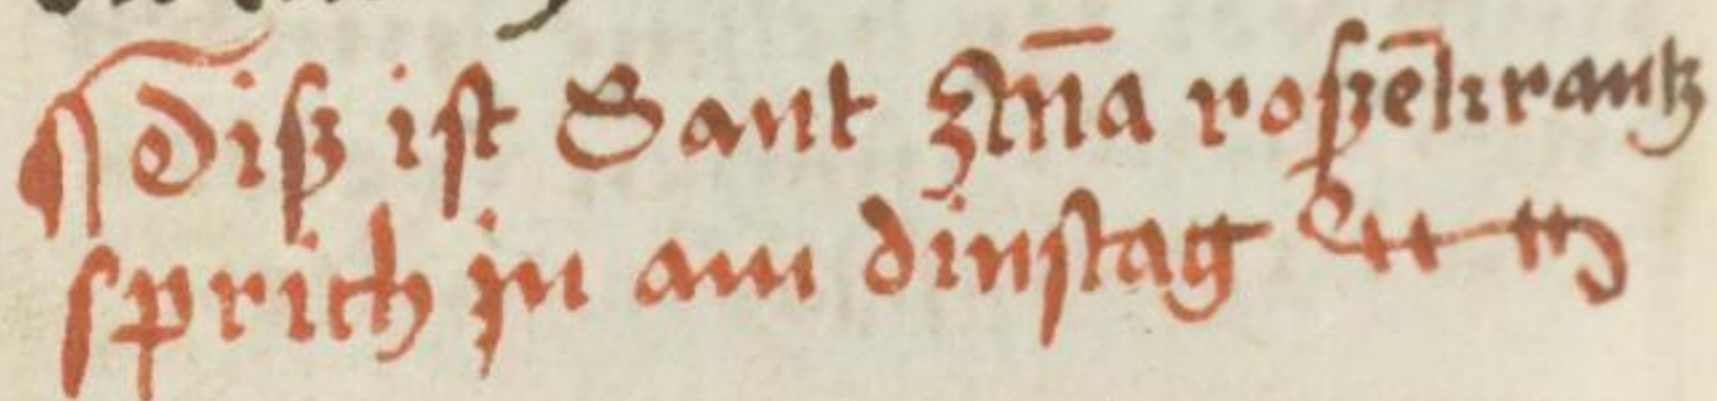 ¶ diß ist Sant Añna roßēkrantz
sprich jn am dinstag